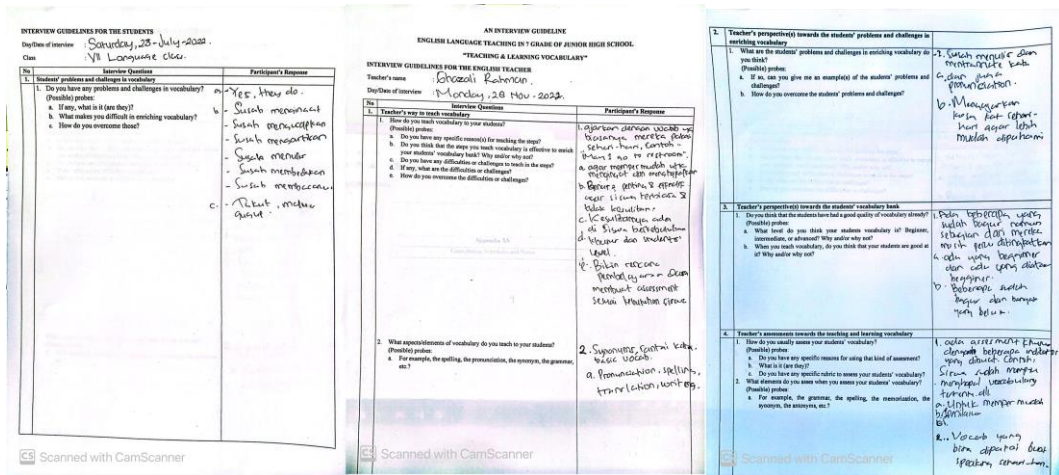 INTERVIEW GUIDELINES FOR THE STUDENTS
Day/Date of interview : Saturday, 23-July-2022.
Class : VII Language class.
No Interview Questions Participant's Response
1. Students' problems and challenges in vocabulary
1. Do you have any problems and challenges in vocabulary?
(Possible) probes:
a. If any, what is it (are they)?
b. What makes you difficult in enriching vocabulary?
c. How do you overcome those?
a - Yes, they do.
b - Susah mengingat
- Susah mengucapkan
- Susah mengartikan
- Susah menulis
- Susah membedakan
- Susah membaca
c. - Takut, malu
CS Scanned with CamScanner
AN INTERVIEW GUIDELINE
ENGLISH LANGUAGE TEACHING IN 7 GRADE OF JUNIOR HIGH SCHOOL
"TEACHING & LEARNING VOCABULARY"
INTERVIEW GUIDELINES FOR THE ENGLISH TEACHER
Teacher's name : Ghozali Rahman.
Day/Date of interview : Monday, 28 Nov. 2022.
No Interview Questions Participant's Response
1. Teacher's way to teach vocabulary
1. How do you teach vocabulary to your students?
(Possible) probes:
a. Do you have any specific reason(s) for teaching the steps?
b. Do you think that the steps you teach vocabulary is effective to enrich
your students' vocabulary bank? Why and/or why not?
c. Do you have any difficulties or challenges to teach in the steps?
d. If any, what are the difficulties or challenges?
e. How do you overcome the difficulties or challenges?
1. ajarkan dengan vocab yg
biasanya mereka pakai
sehari-hari, contoh -
"May I go to restroom".
a. agar mempermudah utk
mengingat dan menghafalkan
b. Benar, penting & effektif
agar siswa terbiasa &
tidak kesulitan.
c. Kesulitannya ada
di siswa berkebutuhan
d. khusus dan students'
level.
e. Bikin rencana
pembelajaran dan
membuat assessment
sesuai kebutuhan siswa
2. What aspects/elements of vocabulary do you teach to your students?
(Possible) probes:
a. For example, the spelling, the pronunciation, the synonym, the grammar,
etc.?
2. Synonyms, kata
basic vocab.
a. Pronunciation, spelling,
translation, writing.
CS Scanned with CamScanner
2. Teacher's perspective(s) towards the students' problems and challenges in
enriching vocabulary
1. What are the students' problems and challenges in enriching vocabulary do
you think?
(Possible) probes:
a. If so, can you give me an example(s) of the students' problems and
challenges?
b. How do you overcome the students' problems and challenges?
1. Susah menulis dan
kata
a. dan juga
pronunciation.
b. Mengajarkan
kosa kat sehari-
hari agar lebih
mudah dipahami
3. Teacher's perspective(s) towards the students' vocabulary bank
1. Do you think that the students have had a good quality of vocabulary already?
(Possible) probes:
a. What level do you think your students vocabulary is? Beginner,
intermediate, or advanced? Why and/or why not?
b. When you teach vocabulary, do you think that your students are good at
it? Why and/or why not?
1. Ada beberapa yang
sudah bagus namun
sebagian dari mereka
masih perlu ditingkatkan
a. ada yang beginner
dan ada yang diatas
beginner.
b. Beberapa sudah
bagus dan banyak
yang belum.
4. Teacher's assessments towards the teaching and learning vocabulary
1. How do you usually assess your students' vocabulary?
(Possible) probes:
a. Do you have any specific reasons for using that kind of assessment?
b. What is it (are they)?
c. Do you have any specific rubric to assess your students' vocabulary?
2. What elements do you assess when you assess your students' vocabulary?
(Possible) probes:
a. For example, the grammar, the spelling, the memorization, the
synonym, the antonyms, etc.?
1. ada assesment khusus
dengan beberapa indikator
yang dibuat. Contoh:
Siswa sudah mampu
menghapal vocabulary
tertentu, dll
a. Untuk mempermudah
b. penilaian
2. Vocab yang
bisa dipakai buat
speaking sehari-hari.
CS Scanned with CamScanner